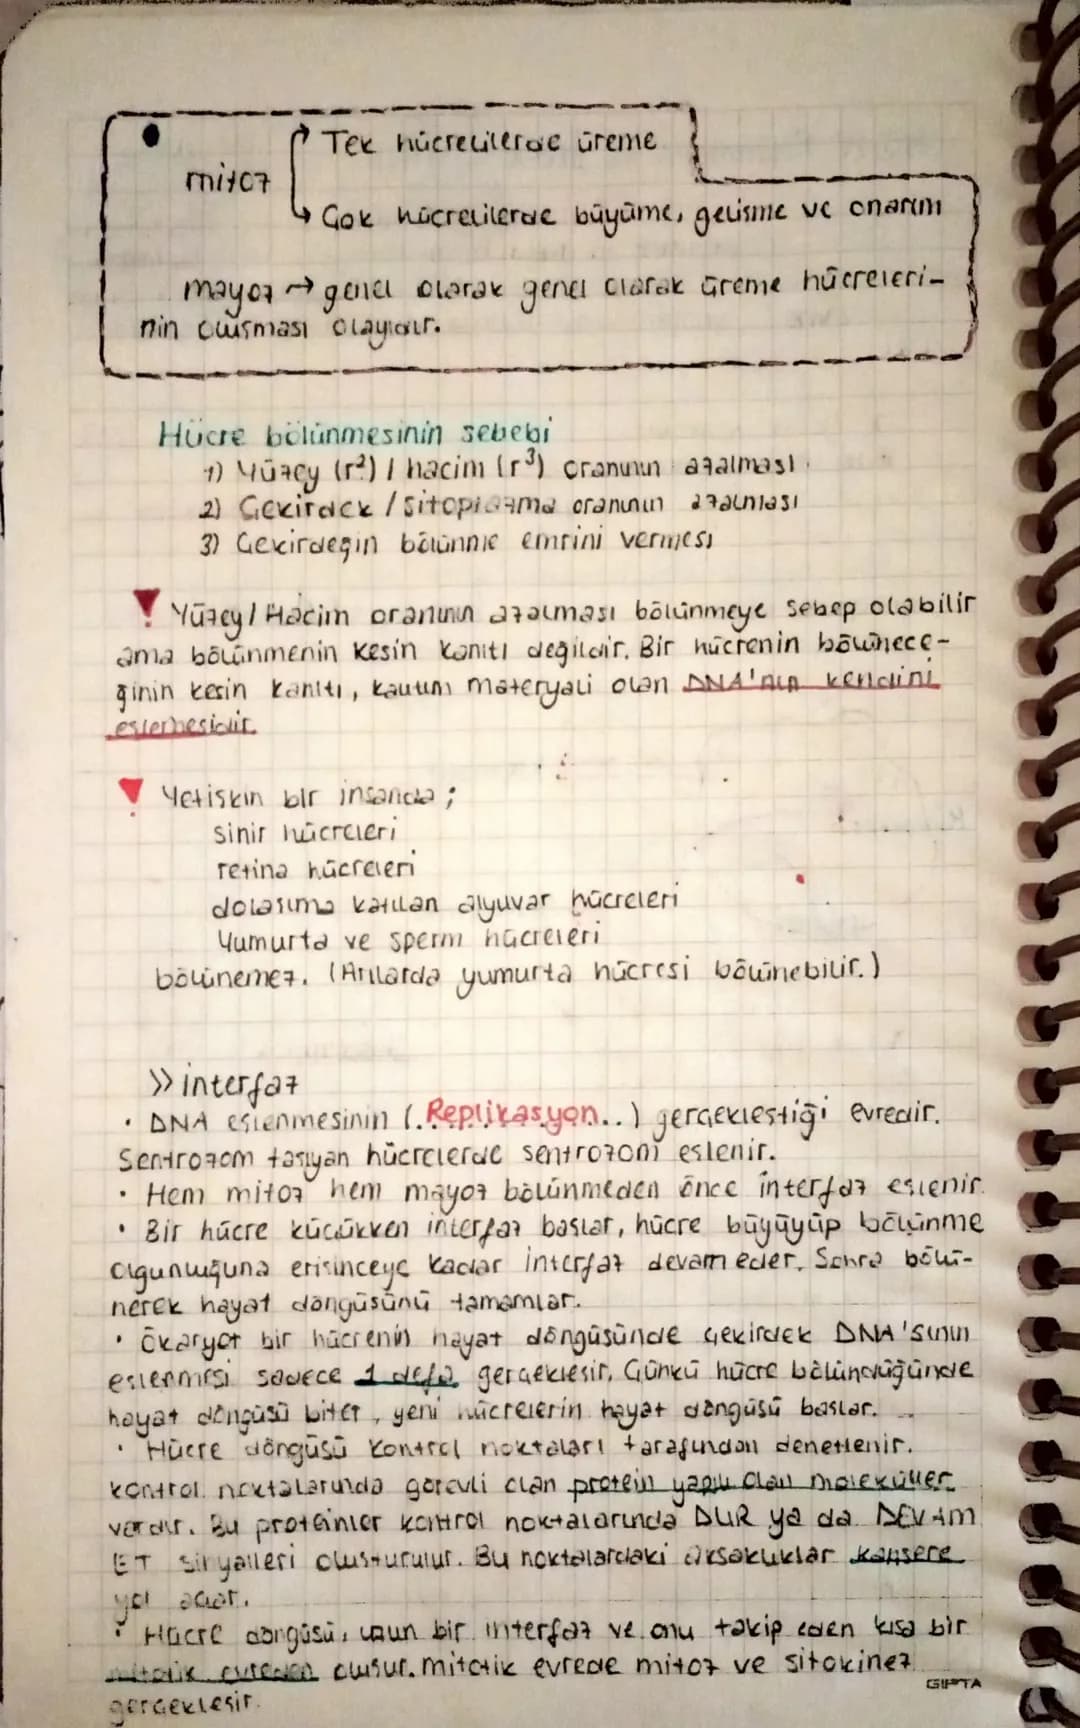 Tek hücrelilerde üreme
mitoz
Çok hücrelilerde büyüme, gelişme ve onarım
mayoz → genel olarak genel olarak üreme hücreleri-
nin oluşması olayıdır.
Hücre bölünmesinin sebebi
1) Yüzey (r²) / hacim (r³) oranının azalması
2) Çekirdek / sitoplazma oranının azalması
3) Çekirdeğin bölünme emrini vermesi
! Yüzey / Hacim oranının azalması bölünmeye sebep olabilir
ama bölünmenin kesin kanıtı değildir. Bir hücrenin bölünece-
ğinin kesin kanıtı, kalıtım materyali olan DNA'nın kendini
eşlemesidir.
! Yetişkin bir insanda ;
sinir hücreleri
retina hücreleri
dolaşıma katılan alyuvar hücreleri
Yumurta ve sperm hücreleri
bölünemez. (Arılarda yumurta hücresi bölünebilir.)
>> interfaz
• DNA eşlenmesinin (..Replikasyon...) gerçekleştiği evredir.
Sentrozom taşıyan hücrelerde sentrozom eşlenir.
• Hem mitoz hem mayoz bölünmeden önce interfaz eşlenir.
• Bir hücre küçükken interfaz başlar, hücre büyüyüp bölünme
olgunluğuna erişinceye kadar interfaz devam eder. Sonra bölü-
nerek hayat döngüsünü tamamlar.
• Ökaryot bir hücrenin hayat döngüsünde çekirdek DNA'sının
eşlenmesi sadece 1 defa gerçekleşir. Çünkü hücre bölündüğünde
hayat döngüsü biter, yeni hücrelerin hayat döngüsü başlar.
• Hücre döngüsü kontrol noktaları tarafından denetlenir.
kontrol noktalarında görevli olan protein yapılı olan moleküller
vardır. Bu proteinler kontrol noktalarında DUR ya da DEVAM
ET sinyalleri oluşturulur. Bu noktalardaki aksaklıklar kansere
yol açar.
• Hücre döngüsü, uzun bir interfaz ve onu takip eden kısa bir
mitotik evreden oluşur. mitotik evrede mitoz ve sitokinez
gerçekleşir.
GIPTA